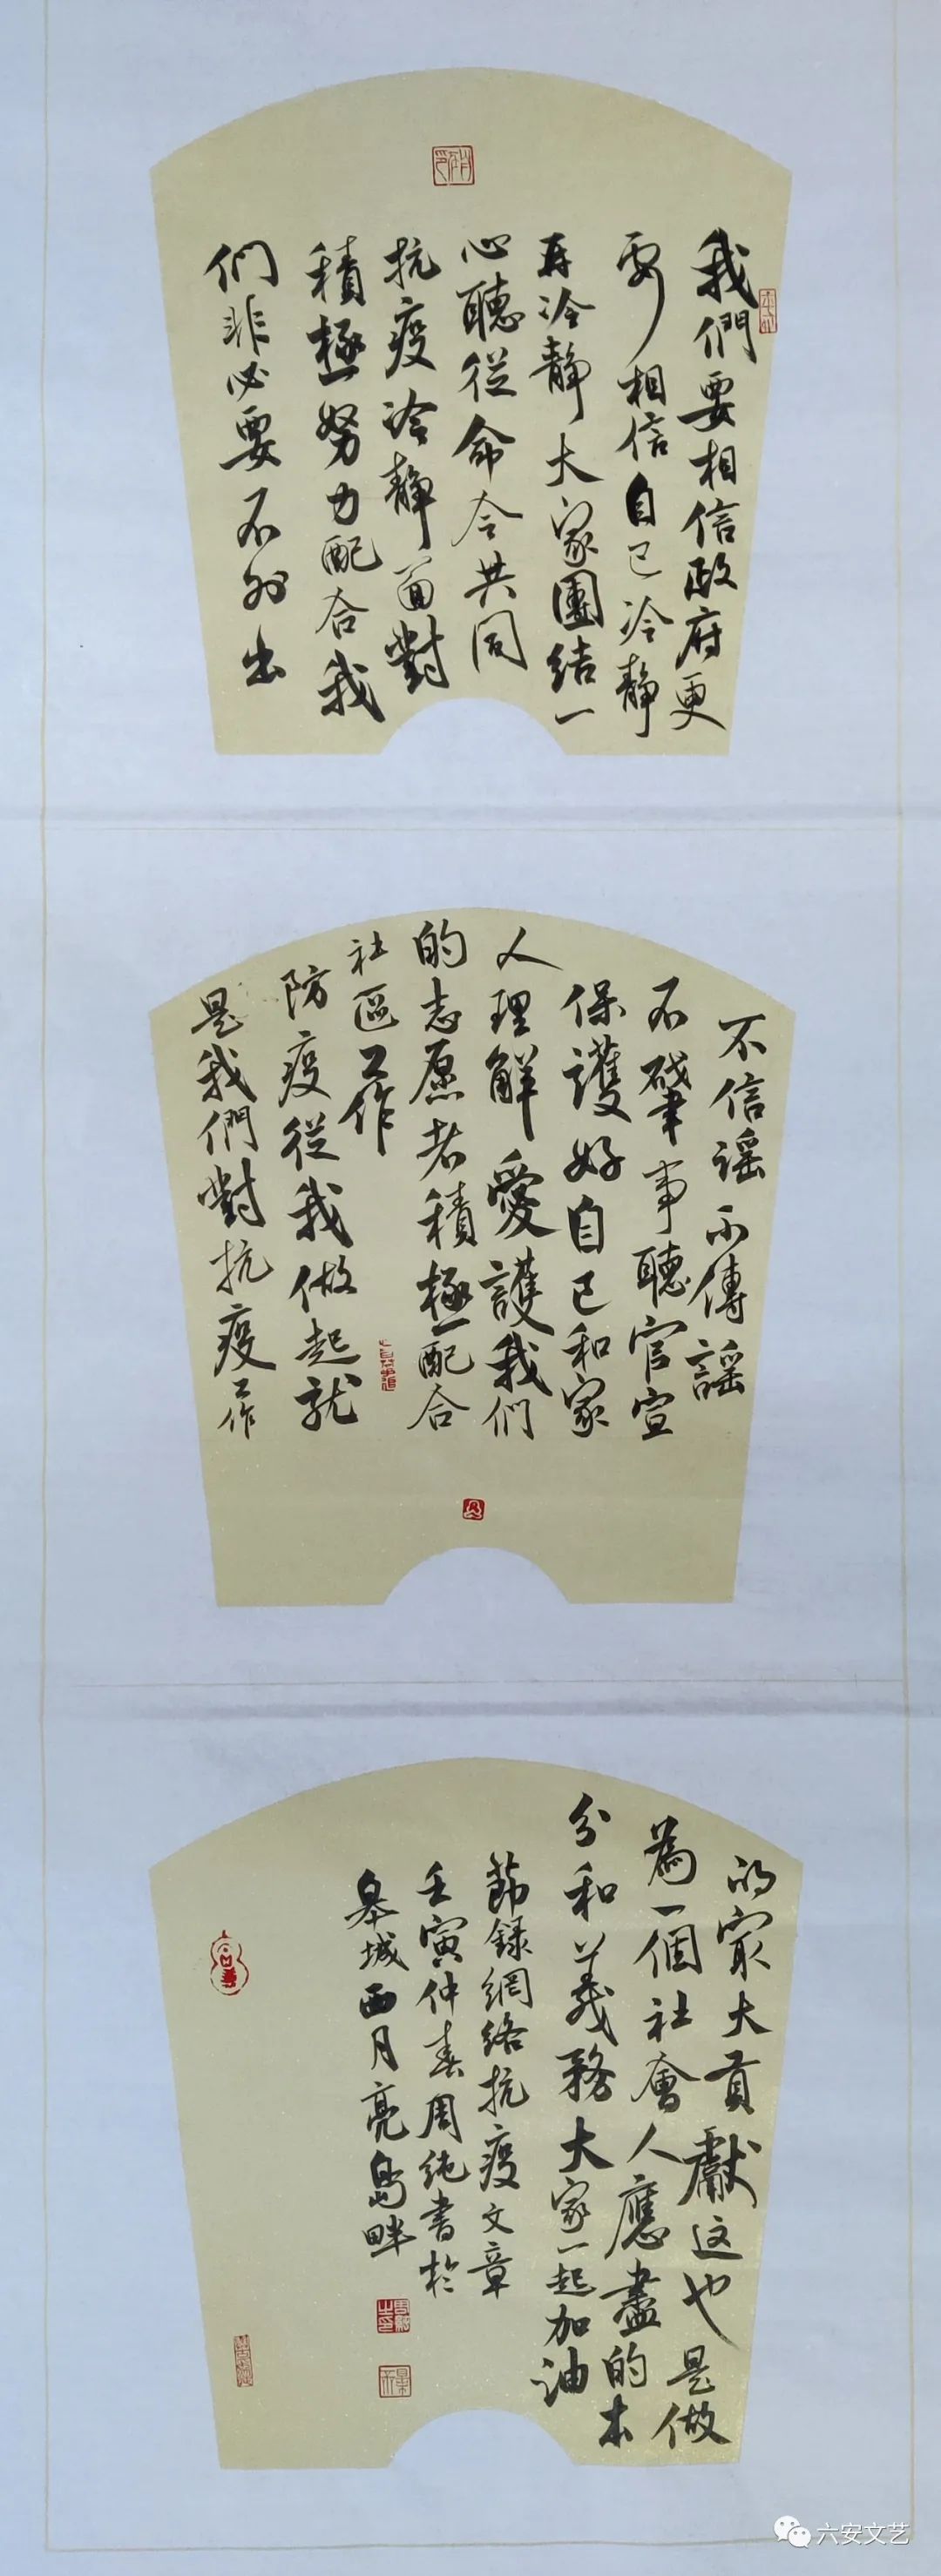 我們要相信政府更
要相信自己冷静
再冷静大家團结一
心聽從命令共同
抗疫冷静面對
積極努力配合我
們非必要不外出
不信谣不傳謡
不肇事聽官宣
保護好自己和家
人理解愛護我们
的志愿者積極配合
社區工作
防疫從我做起就
是我們對抗疫工作
的最大貢獻这也是做
為一個社會人應盡的本
分和義務大家一起加油
節録網络抗疫文章
壬寅仲春周純書於
皋城西月亮島畔
六安文艺